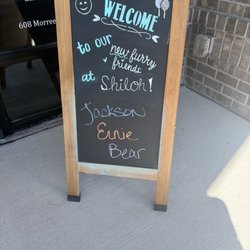 608 Morree
WELCOME
to our
new furry
friends
at Shiloh!
Jackson
Ernie
Bear